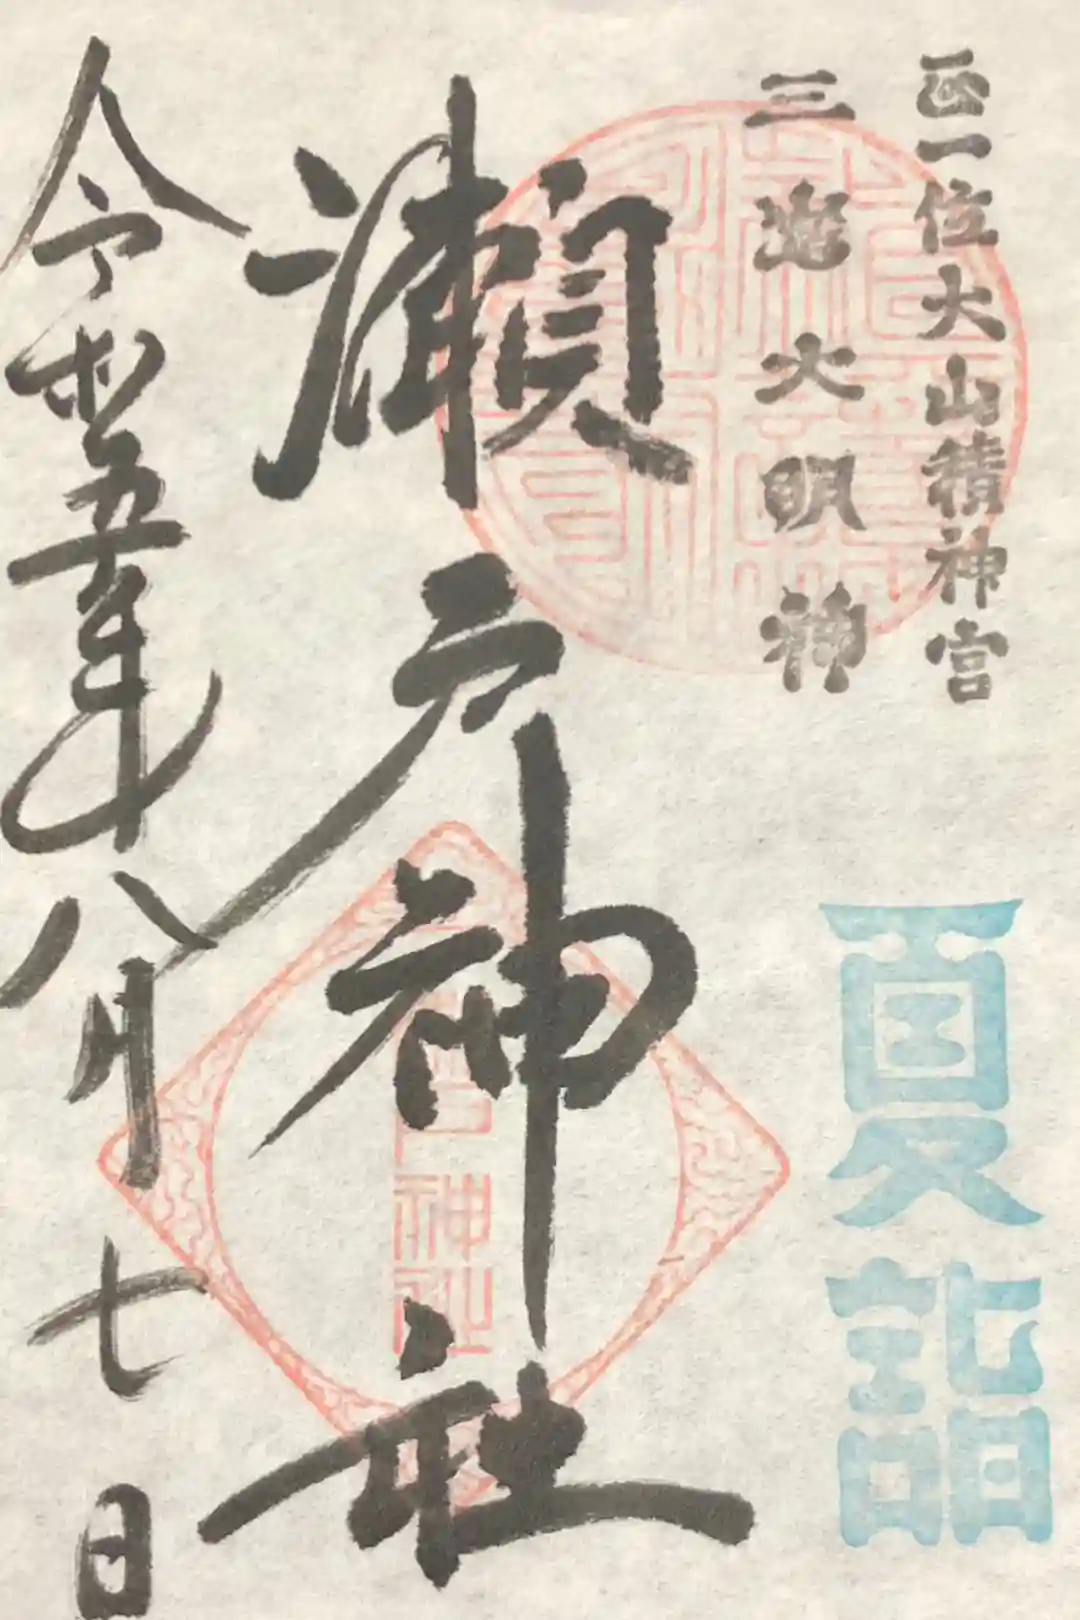 正一位大山積神宮
三嶋大明神
夏詣
瀬戸神社
令和五年八月七日